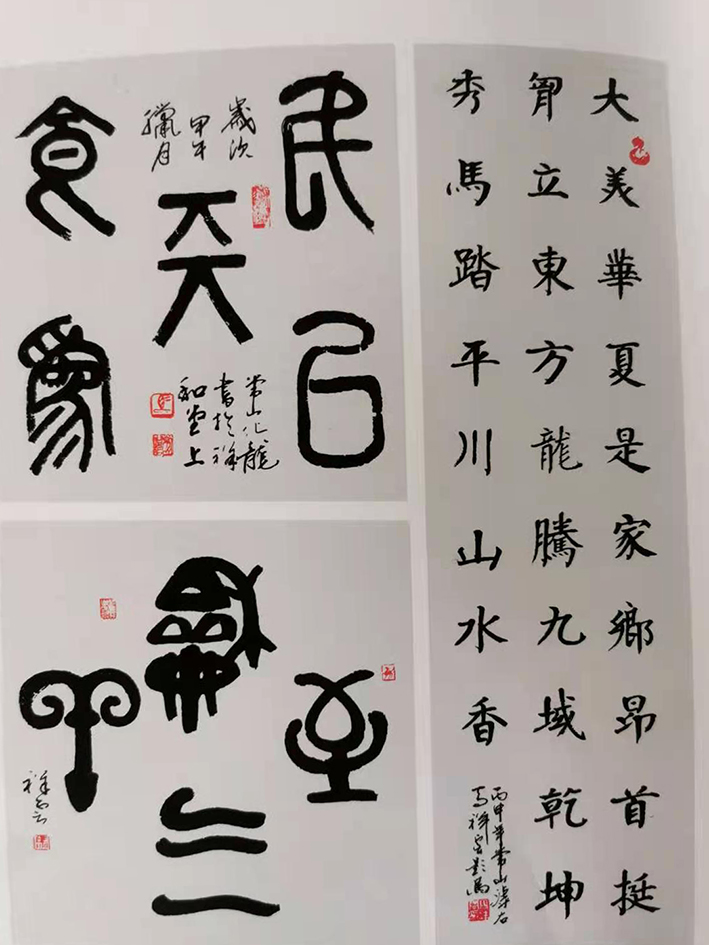 大美華夏是家鄉昂首挺
胷立東方龍騰九域乾坤
秀馬踏平川山水香
丙申年常山
民以
食為
天
歲次
甲午
臘月
常山化龍
書於祥
和堂上
龢气
至
羊
祥云